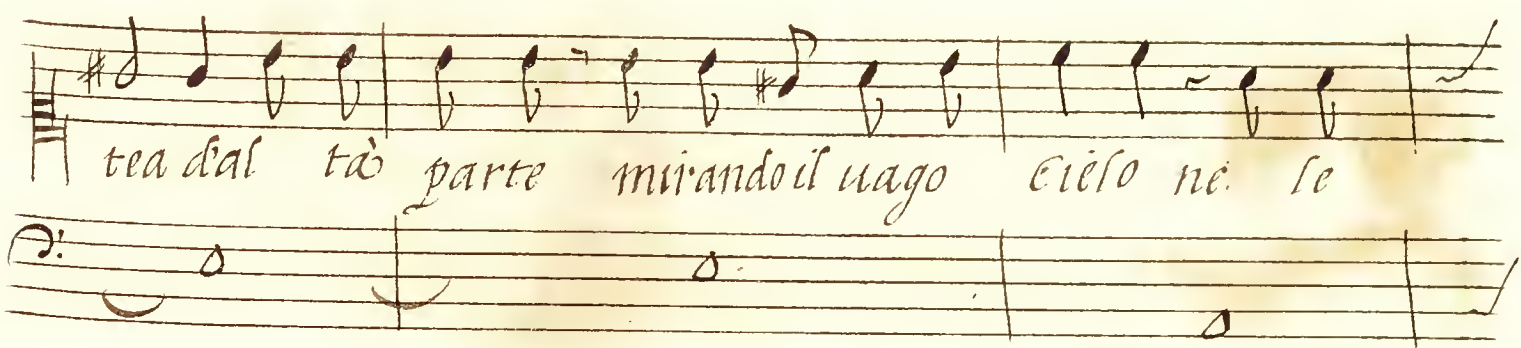 tea d'al tà parte mirando il uago Cielo ne. le